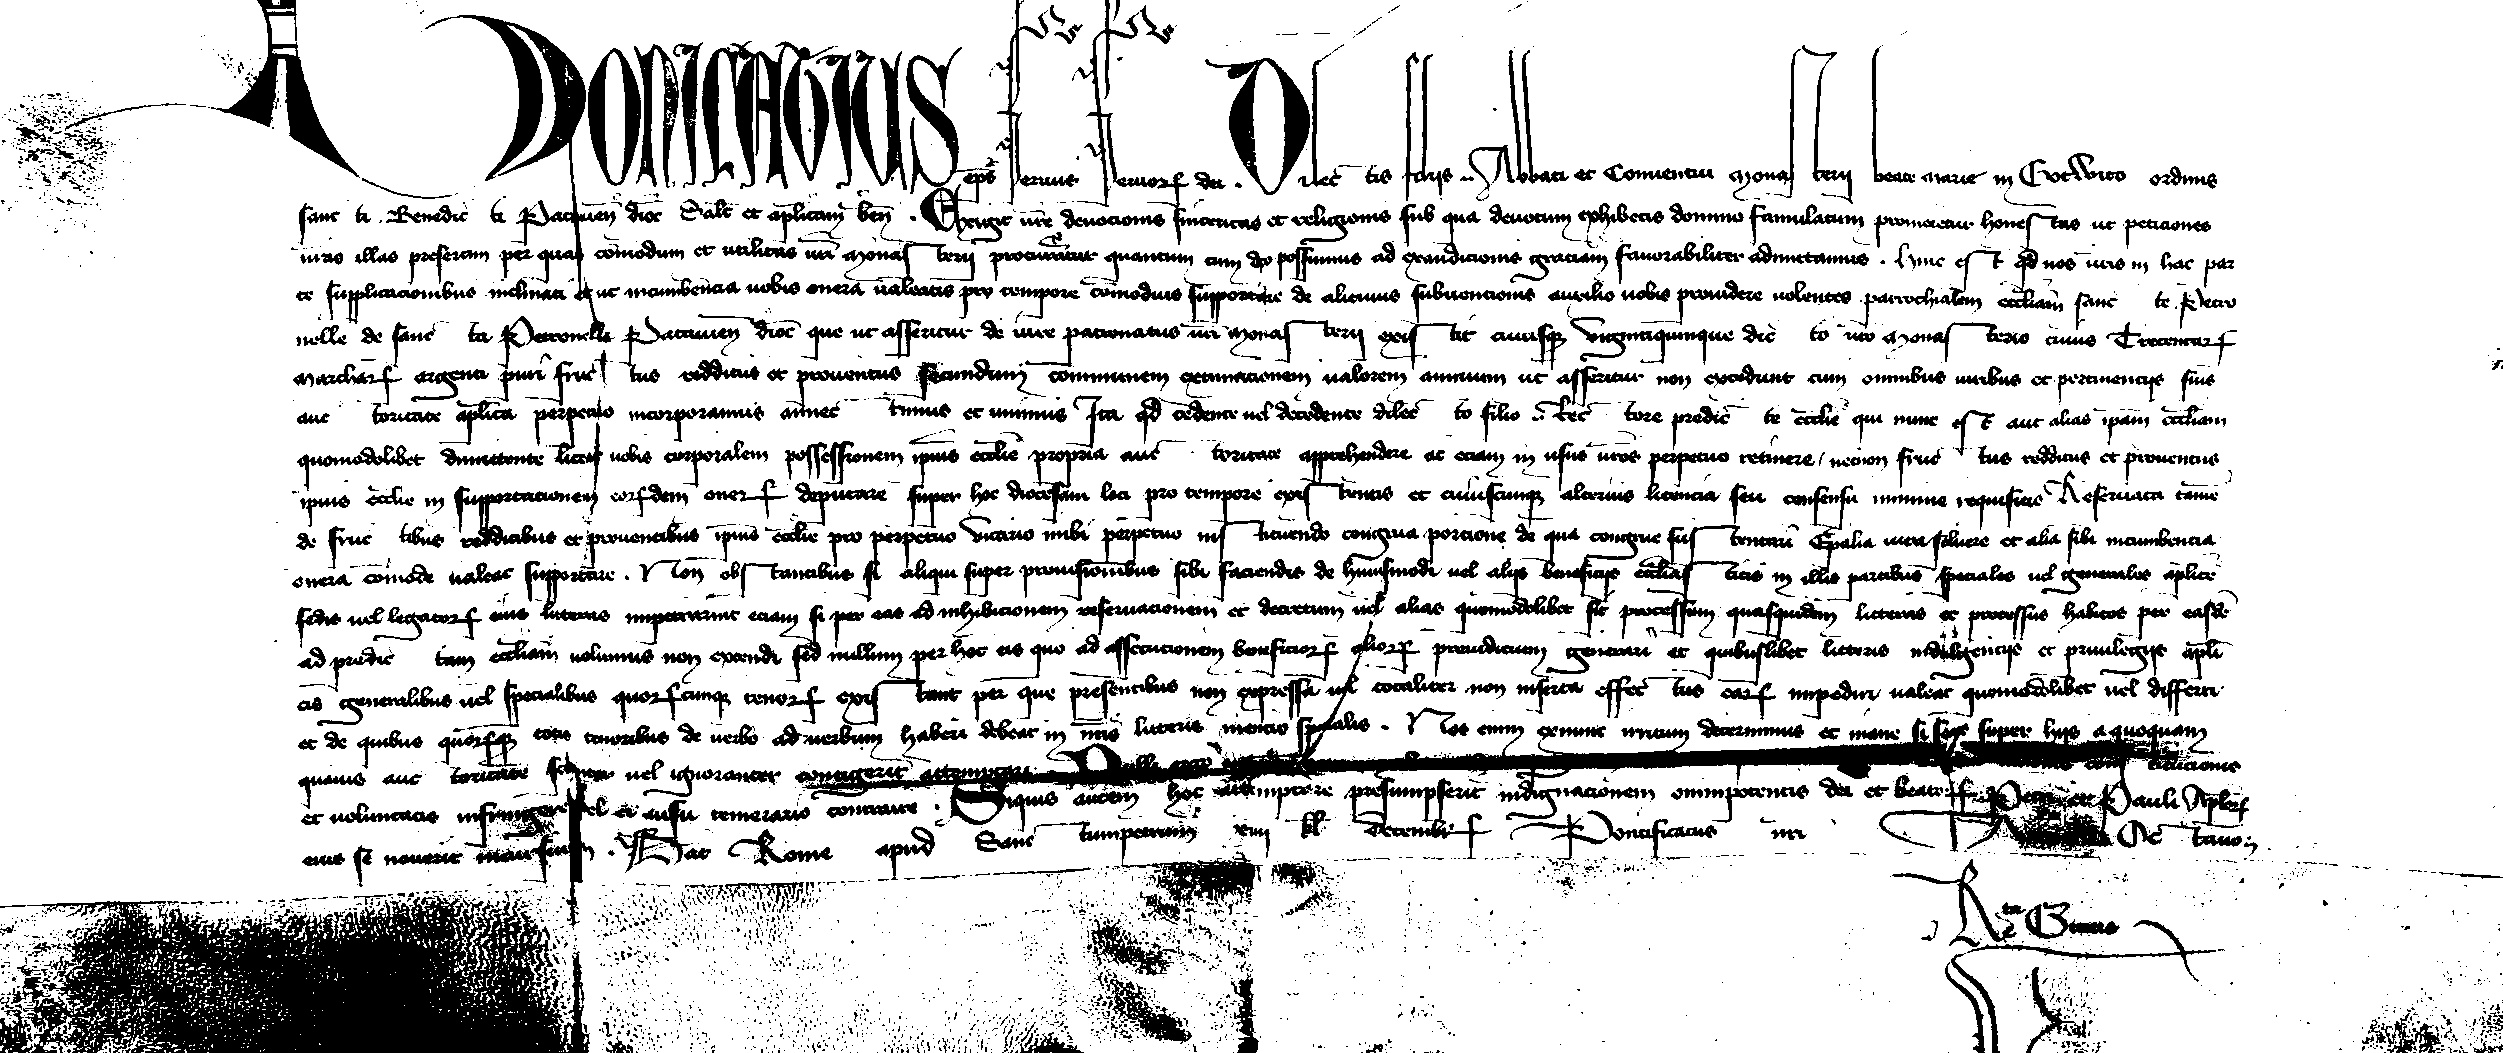 BONIFATIUS eps seruus seruoꝝ dei . Dilectis filijs .. Abbati et Conuentui Monasterij beate Marie in Gotwico ordinis
sancti . Benedicti Patauien dioc Salt et aplicam ben . Exigit ure deuocionis sinceritas et religionis sub qua deuotum exhibetis domino famulatum promeretur honestas ut peticiones
uras illas presertim per quas comodum et utilitas uri Monasterij procuratur quantum cum do possumus ad exaudicionis graciam fauorabiliter admittamus . Hinc est qd nos uris in hac par
te supplicacionibus inclinati et ut incumbencia uobis onera ualeatis pro tempore comodius supportare de alicuius subuencionis auxilio uobis prouidere uolentes parrochialem eccliam sancte Petro
nelle de sancta Petronella Patauien dioc que ut asseritur de iure patronatus uri Monasterij existit cuiusqꝫ Vigintiquinque dicto uro Monasterio cuius Trecentaꝝ
Marchaꝝ argenti puri fructus redditus et prouentus secundum communem extimacionem ualorem annuum ut asseritur non excedunt cum omnibus iuribus et pertinencijs suis
auctoritate aplica perpetuo incorporamus annectimus et unimus Ita qd cedente uel decedente dilecto filio .. Rectore predicte ecclie qui nunc est aut alias ipam eccliam
quomodolibet dimittente liceat uobis corporalem possessionem ipius ecclie propria auctoritate apprehendere ac eciam in usus uros perpetuo retinere / necnon fructus redditus et prouentus
ipius ecclie in supportacionem eoꝝdem oneꝝ deputare super hoc diocesani loci pro tempore existentis et cuiuscunqꝫ alterius licencia seu consensu minime requisitis Reseruata tame
de fructibus redditibus et prouentibus ipius ecclie pro perpetuo Vicario inibi perpetuo instituendo congrua porcione de qua congrue sustentari Epalia iura soluere et alia sibi incumbencia
onera comode ualeat supportare . Non obstantibus si aliqui super prouisionibus sibi faciendis de huiusmodi uel alijs beneficijs ecclasticis in illis partibus speciales uel generales aplice
sedis uel legatoꝝ eius litteras impetrarint eciam si per eas ad inhibicionem reseruacionem et decretum uel alias quomodolibet sit processum quasquidem litteras et processus habitos per easde
ad predictam eccliam uolumus non extendi sed nullum per hoc eis quo ad assecucionem beneficioꝝ alioꝝ preiudicium generari et quibuslibet litteris indulgencijs et priuilegijs apli
cis generalibus uel specialibus quoꝝcunqꝫ tenoꝝ existant per que presentibus non expressa uel totaliter non inserta effectus eaꝝ impediri ualeat quomodolibet uel differri
et de quibus quoꝝqꝫ totis tenoribus de uerbo ad uerbum haberi debeat in nris litteris mencio specialis . Nos enim exnunc irritum decernimus et inane si secus super hijs a quoquam
quauis auctoritate scienter uel ignoranter contigerit attemptari . Nulli ergo constitucionis
et uoluntatis infringere uel ei ausu temerario contraire . Siquis autem hoc attemptare presumpserit indignacionem omnipotentis dei et beatoꝝ Petri et Pauli Aploꝝ
eius se nouerit incursurum . Dat Rome apud Sanctumpetrum xiiij kl Decembꝝ Pontificatus nri Octauo
Rta Gratis